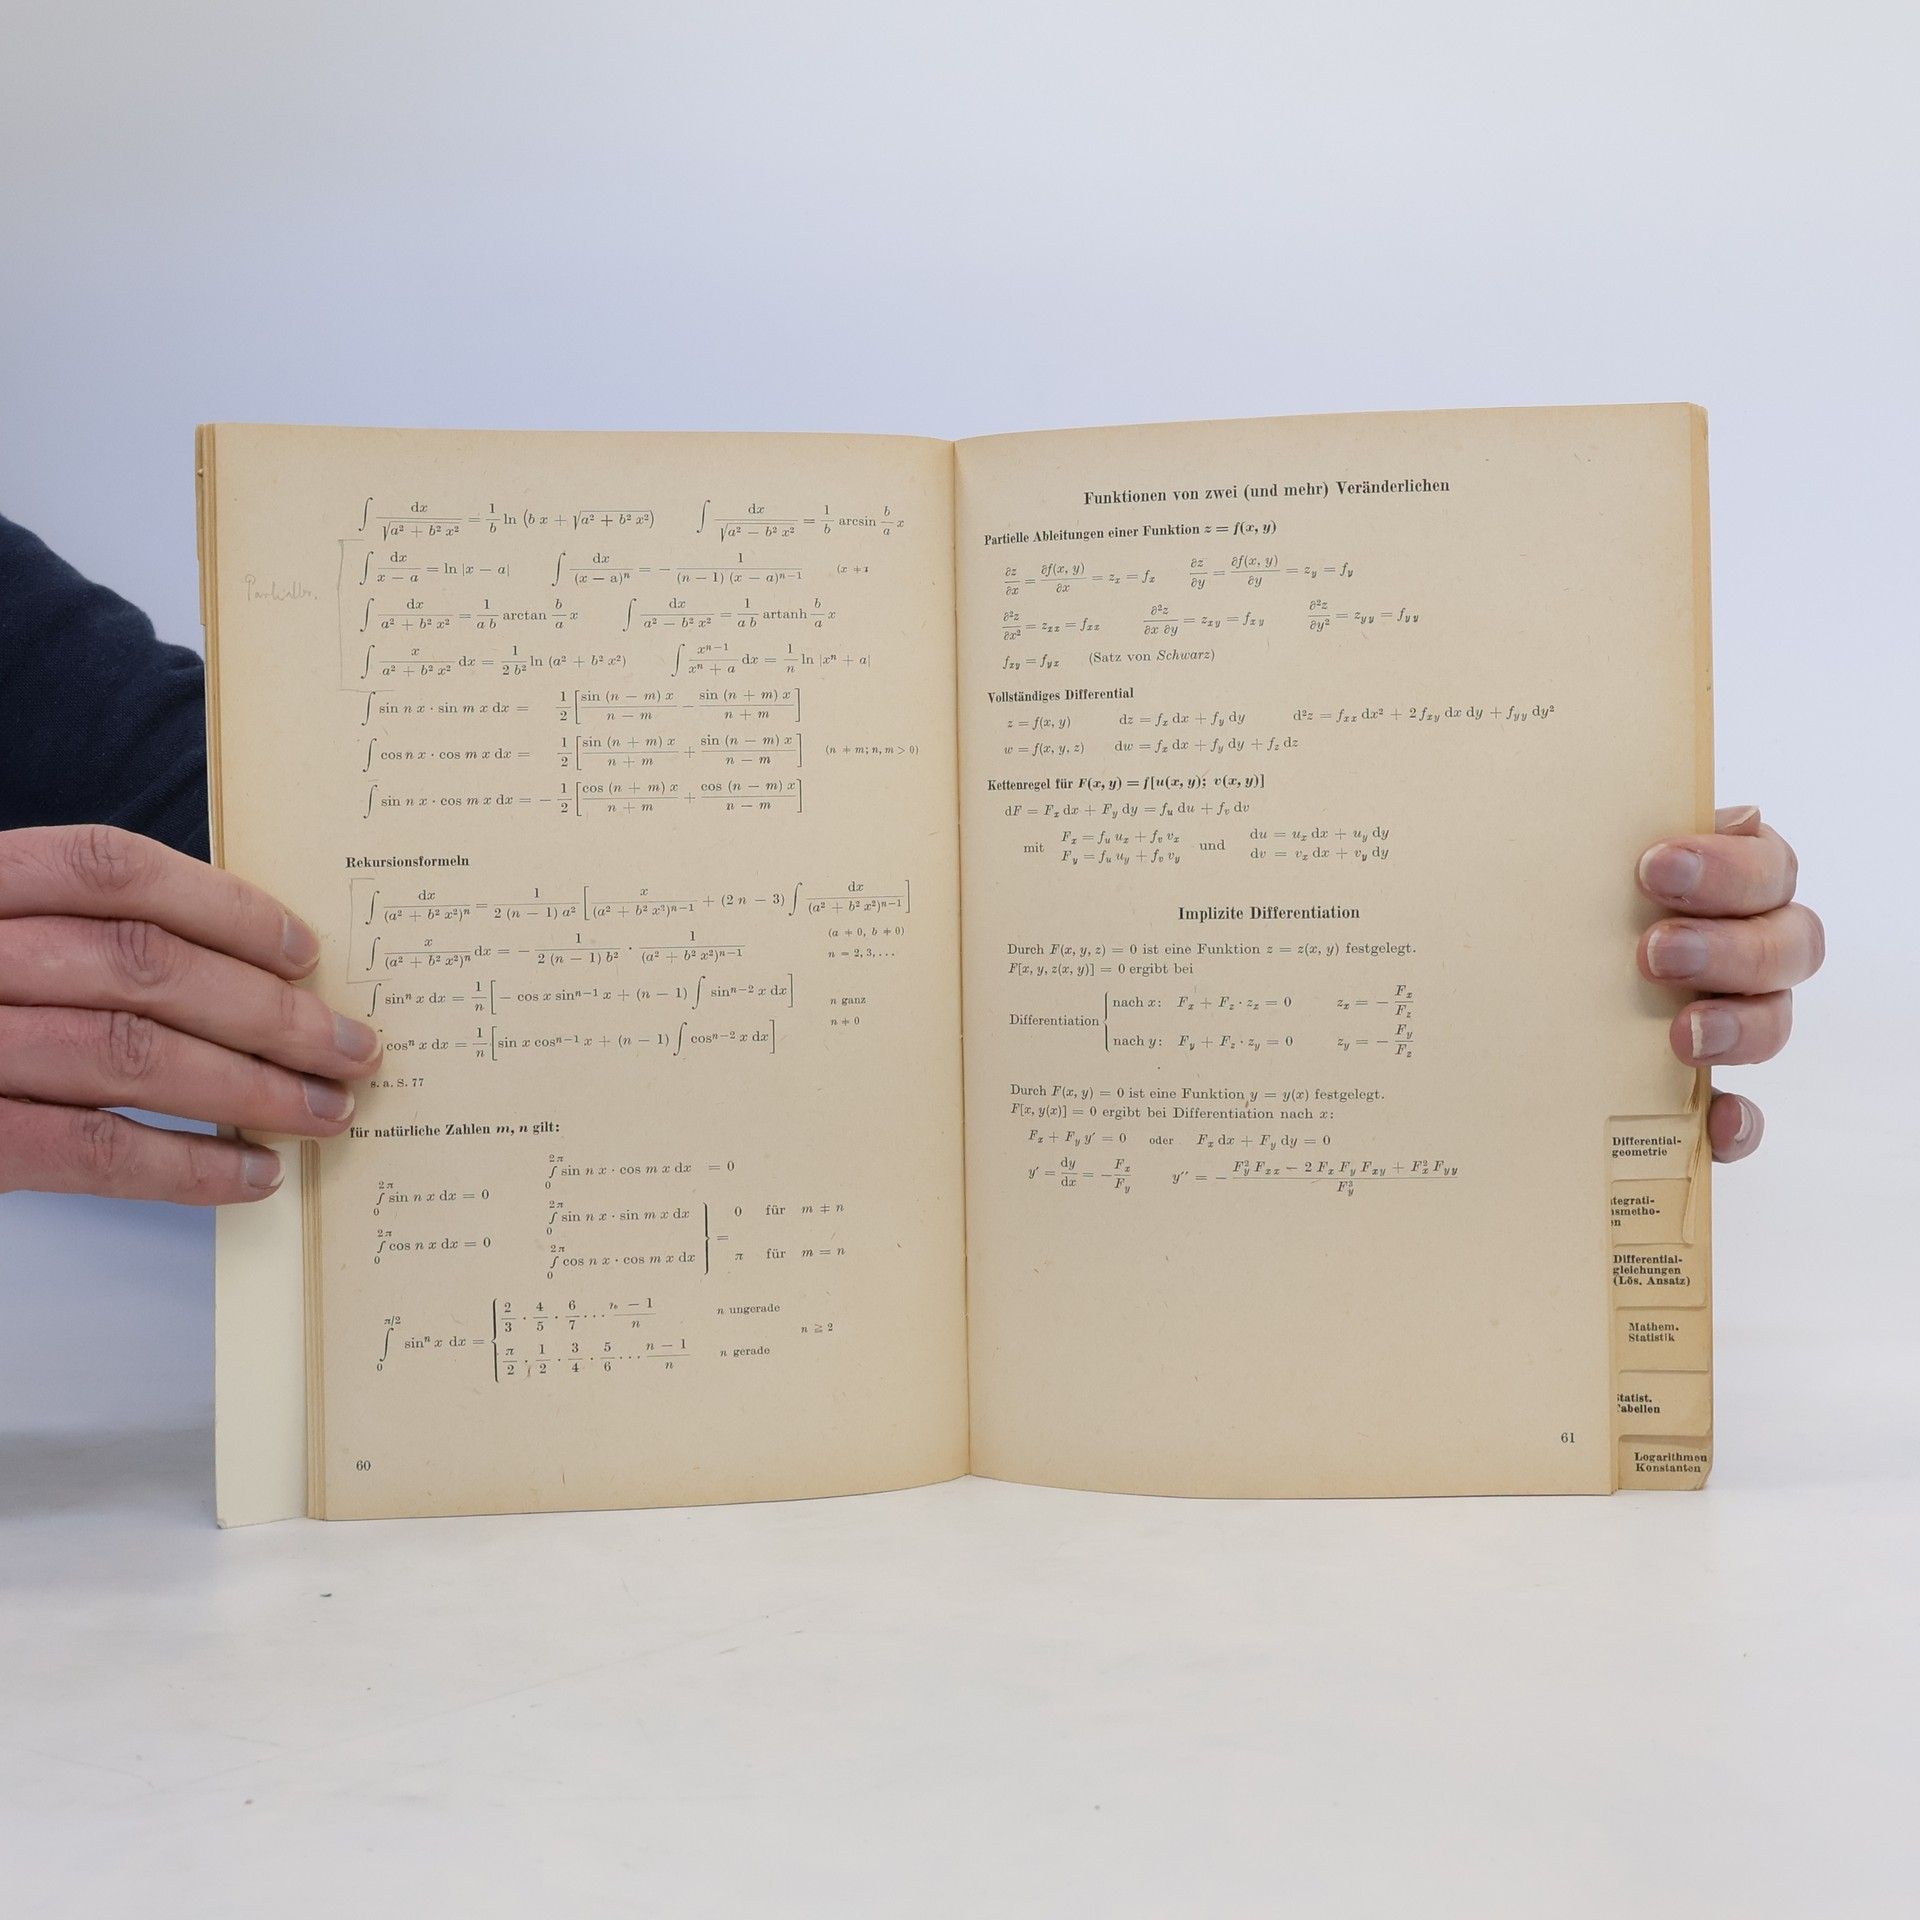 ∫ dx/√(a² + b² x²) = 1/b ln (b x + √(a² + b² x²))   ∫ dx/√(a² − b² x²) = 1/b arcsin b/a x
∫ dx/(x − a) = ln |x − a|   ∫ dx/(x − a)ⁿ = − 1/((n − 1) (x − a)ⁿ⁻¹)
∫ dx/(a² + b² x²) = 1/(a b) arctan b/a x   ∫ dx/(a² − b² x²) = 1/(a b) artanh b/a x
∫ x/(a² + b² x²) dx = 1/(2 b²) ln (a² + b² x²)   ∫ xⁿ⁻¹/(xⁿ + a) dx = 1/n ln |xⁿ + a|
∫ sin n x · sin m x dx = 1/2 [sin (n − m) x/(n − m) − sin (n + m) x/(n + m)]
∫ cos n x · cos m x dx = 1/2 [sin (n + m) x/(n + m) + sin (n − m) x/(n − m)]   (n ≠ m; n, m > 0)
∫ sin n x · cos m x dx = − 1/2 [cos (n + m) x/(n + m) + cos (n − m) x/(n − m)]
Rekursionsformeln
∫ dx/(a² + b² x²)ⁿ = 1/(2 (n − 1) a²) [x/(a² + b² x²)ⁿ⁻¹ + (2 n − 3) ∫ dx/(a² + b² x²)ⁿ⁻¹]
(a ≠ 0, b ≠ 0)
∫ x/(a² + b² x²)ⁿ dx = − 1/(2 (n − 1) b²) · 1/(a² + b² x²)ⁿ⁻¹   n = 2, 3, . . .
∫ sinⁿ x dx = 1/n [− cos x sinⁿ⁻¹ x + (n − 1) ∫ sinⁿ⁻² x dx]   n ganz
n ≠ 0
cosⁿ x dx = 1/n [sin x cosⁿ⁻¹ x + (n − 1) ∫ cosⁿ⁻² x dx]
s. a. S. 77
für natürliche Zahlen m, n gilt:
∫₀^2π sin n x · cos m x dx = 0
∫₀^2π sin n x dx = 0
∫₀^2π sin n x · sin m x dx
0 für m ≠ n
∫₀^2π cos n x dx = 0
=
∫₀^2π cos n x · cos m x dx
π für m = n
∫₀^π/2 sinⁿ x dx = { 2/3 · 4/5 · 6/7 · · · (n − 1)/n   n ungerade
n ≧ 2
π/2 · 1/2 · 3/4 · 5/6 · · · (n − 1)/n   n gerade
60
Funktionen von zwei (und mehr) Veränderlichen
Partielle Ableitungen einer Funktion z = f(x, y)
∂z/∂x = ∂f(x, y)/∂x = z_x = f_x   ∂z/∂y = ∂f(x, y)/∂y = z_y = f_y
∂²z/∂x² = z_xx = f_xx   ∂²z/∂x ∂y = z_xy = f_xy   ∂²z/∂y² = z_yy = f_yy
f_xy = f_yx   (Satz von Schwarz)
Vollständiges Differential
z = f(x, y)   dz = f_x dx + f_y dy   d²z = f_xx dx² + 2 f_xy dx dy + f_yy dy²
w = f(x, y, z)   dw = f_x dx + f_y dy + f_z dz
Kettenregel für F(x, y) = f[u(x, y); v(x, y)]
dF = F_x dx + F_y dy = f_u du + f_v dv
F_x = f_u u_x + f_v v_x   du = u_x dx + u_y dy
mit   und
F_y = f_u u_y + f_v v_y   dv = v_x dx + v_y dy
Implizite Differentiation
Durch F(x, y, z) = 0 ist eine Funktion z = z(x, y) festgelegt.
F[x, y, z(x, y)] = 0 ergibt bei
nach x: F_x + F_z · z_x = 0   z_x = − F_x/F_z
Differentiation
nach y: F_y + F_z · z_y = 0   z_y = − F_y/F_z
Durch F(x, y) = 0 ist eine Funktion y = y(x) festgelegt.
F[x, y(x)] = 0 ergibt bei Differentiation nach x:
F_x + F_y y′ = 0 oder F_x dx + F_y dy = 0
y′ = dy/dx = − F_x/F_y   y′′ = − (F_y² F_xx − 2 F_x F_y F_xy + F_x² F_yy)/F_y³
61
Differential-
geometrie
tegrati-
smetho-
en
Differential-
gleichungen
(Lös. Ansatz)
Mathem.
Statistik
tatist.
abellen
Logarithmen
Konstanten